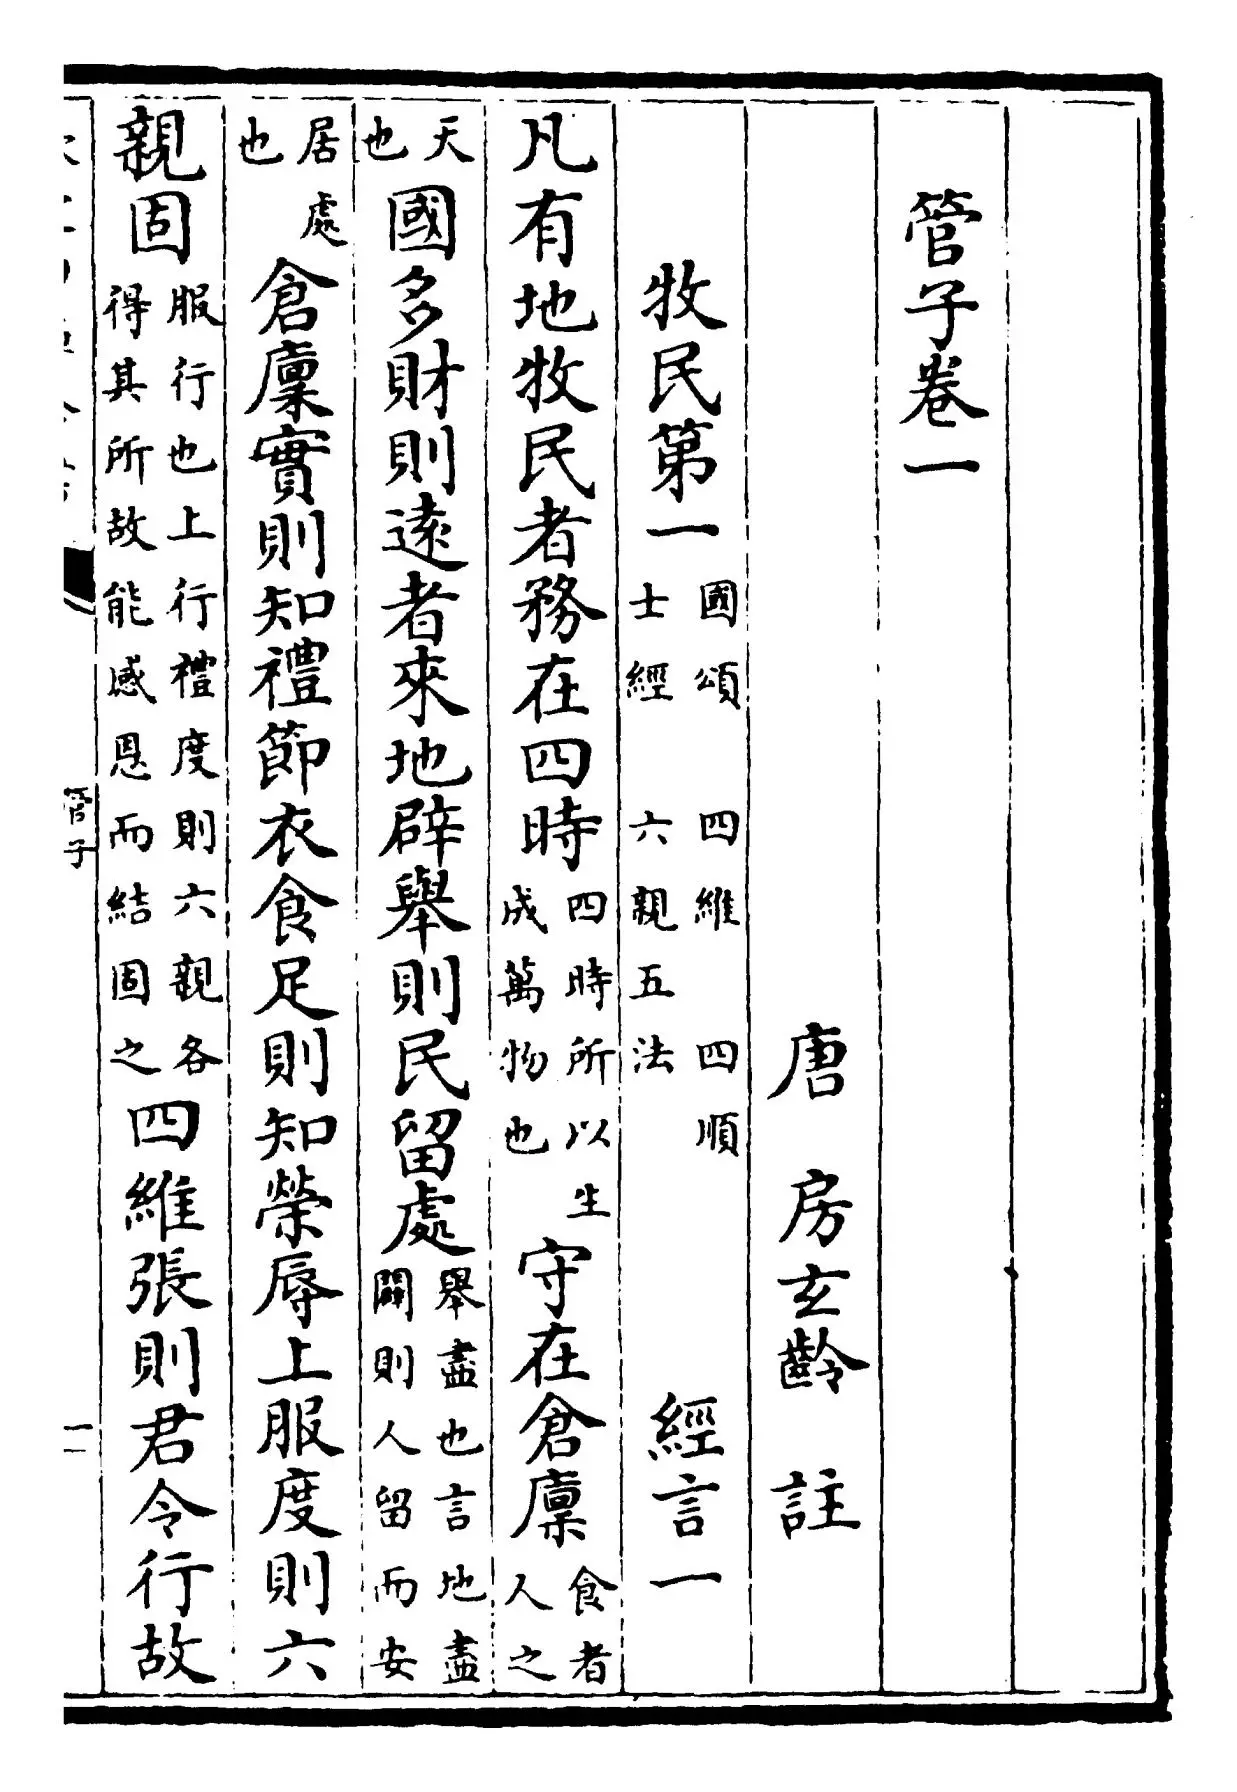 管子卷一
唐 房玄齡 註
牧民第一 國頌 四維 四順 士經 六親五法 經言一
凡有地牧民者務在四時四時所以生成萬物也守在倉廩食者人之
天也國多財則遠者來地辟舉則民留處舉盡也言地盡闢則人留而安
居處也倉廩實則知禮節衣食足則知榮辱上服度則六
親固服行也上行禮度則六親各得其所故能感恩而結固之四維張則君令行故
管子